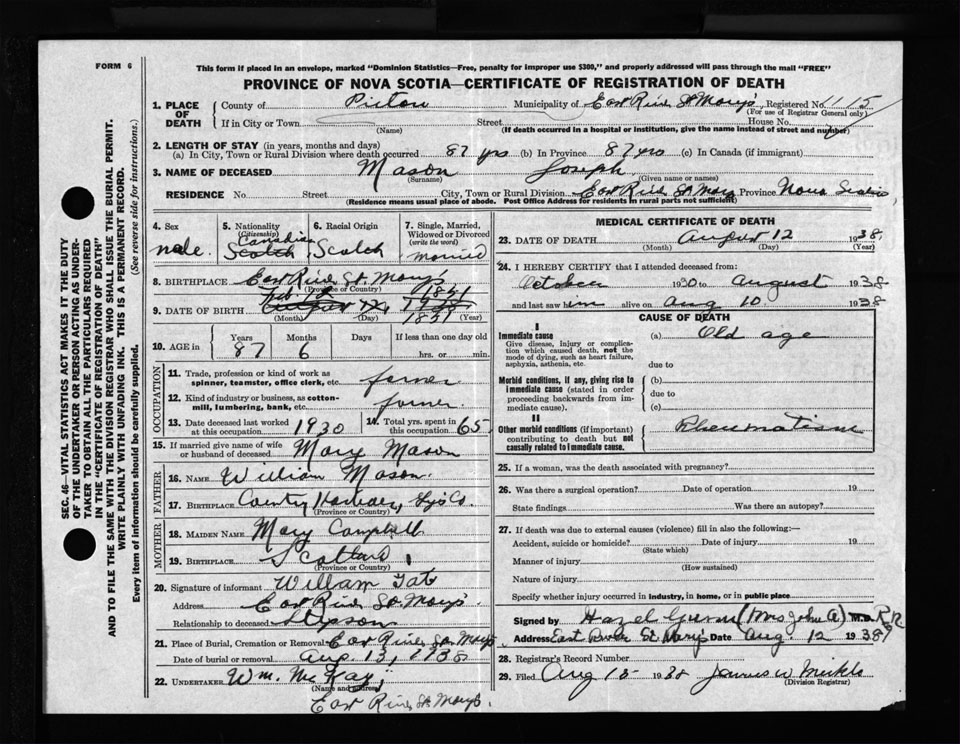 FORM 6
This form if placed in an envelope, marked "Dominion Statistics—Free, penalty for improper use $300," and properly addressed will pass through the mail "FREE"
PROVINCE OF NOVA SCOTIA—CERTIFICATE OF REGISTRATION OF DEATH
1. PLACE OF DEATH County of Pictou Municipality of East River St Mary's Registered No. 1115
(For use of Registrar General only)
If in City or Town Street House No.
(Name) (If death occurred in a hospital or institution, give the name instead of street and number)
2. LENGTH OF STAY (in years, months and days)
(a) In City, Town or Rural Division where death occurred 87 yrs (b) In Province 87 yrs (c) In Canada (if immigrant)
3. NAME OF DECEASED Mason Joseph
(Surname) (Given name or names)
RESIDENCE No. Street City, Town or Rural Division East River St Mary Province Nova Scotia
(Residence means usual place of abode. Post Office Address for residents in rural parts not sufficient)
4. Sex male
5. Nationality (Citizenship) Canadian Scotch
6. Racial Origin Scotch
7. Single, Married, Widowed or Divorced (write the word) married
8. BIRTHPLACE East River St. Mary's
(Province or Country)
9. DATE OF BIRTH Feb. 12 1851
(Month) (Day) (Year)
10. AGE in Years 87 Months 6 Days If less than one day old hrs. or min.
OCCUPATION
11. Trade, profession or kind of work as spinner, teamster, office clerk, etc. farmer
12. Kind of industry or business, as cotton-mill, lumbering, bank, etc. farmer
13. Date deceased last worked at this occupation 1930 14. Total yrs. spent in this occupation 65
15. If married give name of wife or husband of deceased Mary Mason
FATHER
16. NAME William Mason
17. BIRTHPLACE Country Harbour, Guys Co.
(Province or Country)
MOTHER
18. MAIDEN NAME Mary Campbell
19. BIRTHPLACE Scotland
(Province or Country)
20. Signature of informant William Tate
Address East River St. Mary's
Relationship to deceased Stepson
21. Place of Burial, Cremation or Removal East River St Mary's
Date of burial or removal Aug. 13, 1938
22. UNDERTAKER Wm. McKay,
(Name and address)
East River St Mary's.
MEDICAL CERTIFICATE OF DEATH
23. DATE OF DEATH August 12 1938
(Month) (Day) (Year)
24. I HEREBY CERTIFY that I attended deceased from:
October 1930 to August 1938
and last saw him alive on Aug 10 1938
CAUSE OF DEATH
I
Immediate cause (a) Old age
Give disease, injury or complication which caused death, not the mode of dying, such as heart failure, asphyxia, asthenia, etc.
due to
Morbid conditions, if any, giving rise to immediate cause (stated in order proceeding backwards from immediate cause).
(b)
due to
(c)
II
Other morbid conditions (if important) contributing to death but not causally related to immediate cause.
Rheumatism
25. If a woman, was the death associated with pregnancy?
26. Was there a surgical operation? Date of operation 19
State findings Was there an autopsy?
27. If death was due to external causes (violence) fill in also the following:—
Accident, suicide or homicide? Date of injury 19
(State which)
Manner of injury
(How sustained)
Nature of injury
Specify whether injury occurred in industry, in home, or in public place
Signed by Hazel (Mrs John A) M.D. RN
Address East River St Mary's Date Aug. 12 1938
28. Registrar's Record Number
29. Filed Aug 15 1938 James W
(Division Registrar)
SEC. 46—VITAL STATISTICS ACT MAKES IT THE DUTY
OF THE UNDERTAKER OR PERSON ACTING AS UNDER-
TAKER TO OBTAIN ALL THE PARTICULARS REQUIRED
IN THE "CERTIFICATE OF REGISTRATION OF DEATH"
AND TO FILE THE SAME WITH THE DIVISION REGISTRAR WHO SHALL ISSUE THE BURIAL PERMIT.
WRITE PLAINLY WITH UNFADING INK. THIS IS A PERMANENT RECORD.
Every item of information should be carefully supplied. (See reverse side for instructions.)